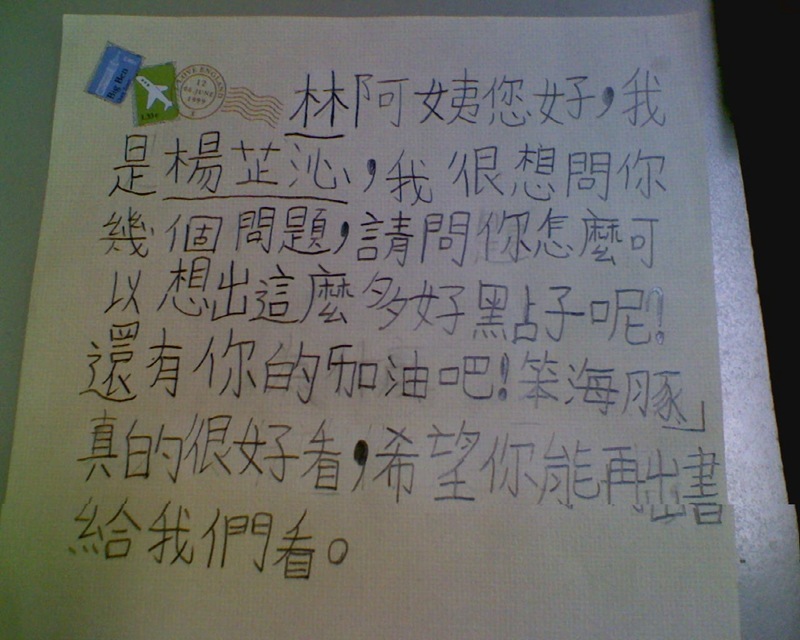 Big Ben
LOVE ENGLAND
12
JUNE
1999
林阿姨您好，我
是楊芷沁，我很想問你
幾個問題，請問你怎麼可
以想出這麼多好點子呢!
還有你的加油吧!笨海豚」
真的很好看，希望你能再出書
給我們看。